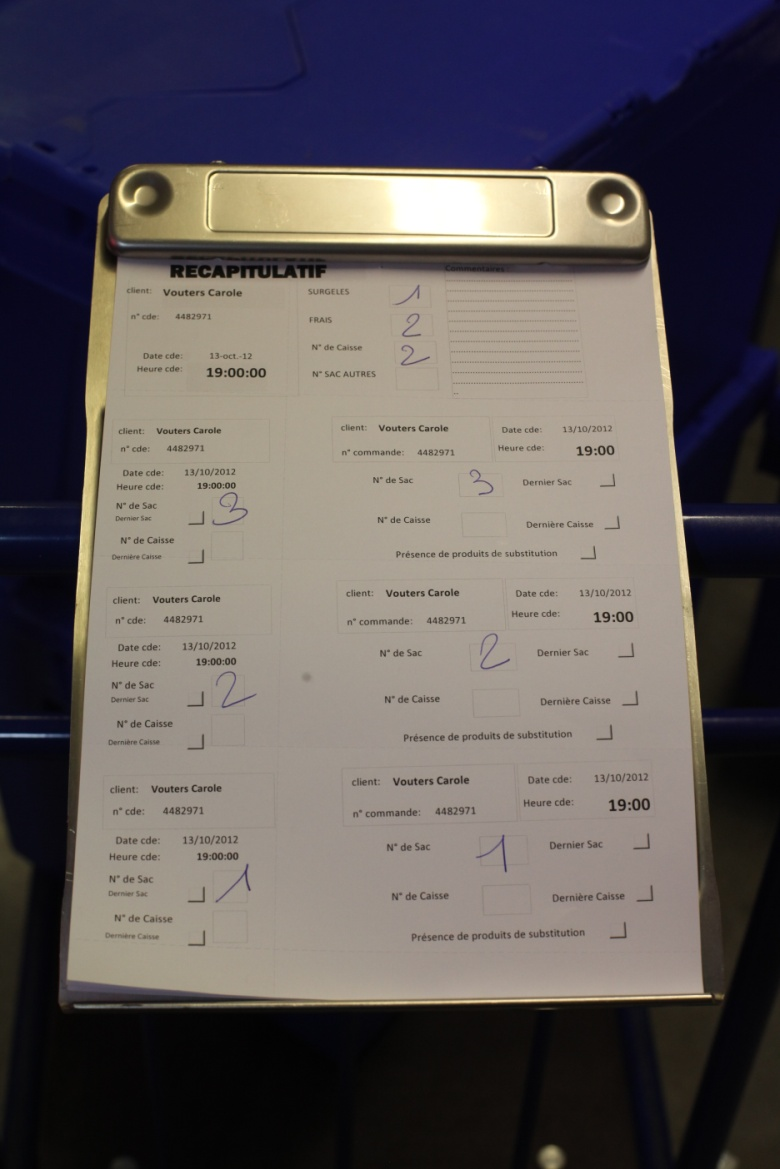 RECAPITULATIF
Commentaires:
client: Vouters Carole
n° cde: 4482971
Date cde: 13-oct.-12
Heure cde: 19:00:00
SURGELES 1
FRAIS 2
N° de Caisse 2
N° SAC AUTRES
client: Vouters Carole
n° cde: 4482971
Date cde: 13/10/2012
Heure cde: 19:00:00
N° de Sac 3
Dernier Sac
N° de Caisse
Dernière Caisse
client: Vouters Carole
n° commande: 4482971
Date cde: 13/10/2012
Heure cde: 19:00
N° de Sac 3 Dernier Sac
N° de Caisse Dernière Caisse
Présence de produits de substitution
client: Vouters Carole
n° cde: 4482971
Date cde: 13/10/2012
Heure cde: 19:00:00
N° de Sac 2
Dernier Sac
N° de Caisse
Dernière Caisse
client: Vouters Carole
n° commande: 4482971
Date cde: 13/10/2012
Heure cde: 19:00
N° de Sac 2 Dernier Sac
N° de Caisse Dernière Caisse
Présence de produits de substitution
client: Vouters Carole
n° cde: 4482971
Date cde: 13/10/2012
Heure cde: 19:00:00
N° de Sac 1
Dernier Sac
N° de Caisse
Dernière Caisse
client: Vouters Carole
n° commande: 4482971
Date cde: 13/10/2012
Heure cde: 19:00
N° de Sac 1 Dernier Sac
N° de Caisse Dernière Caisse
Présence de produits de substitution